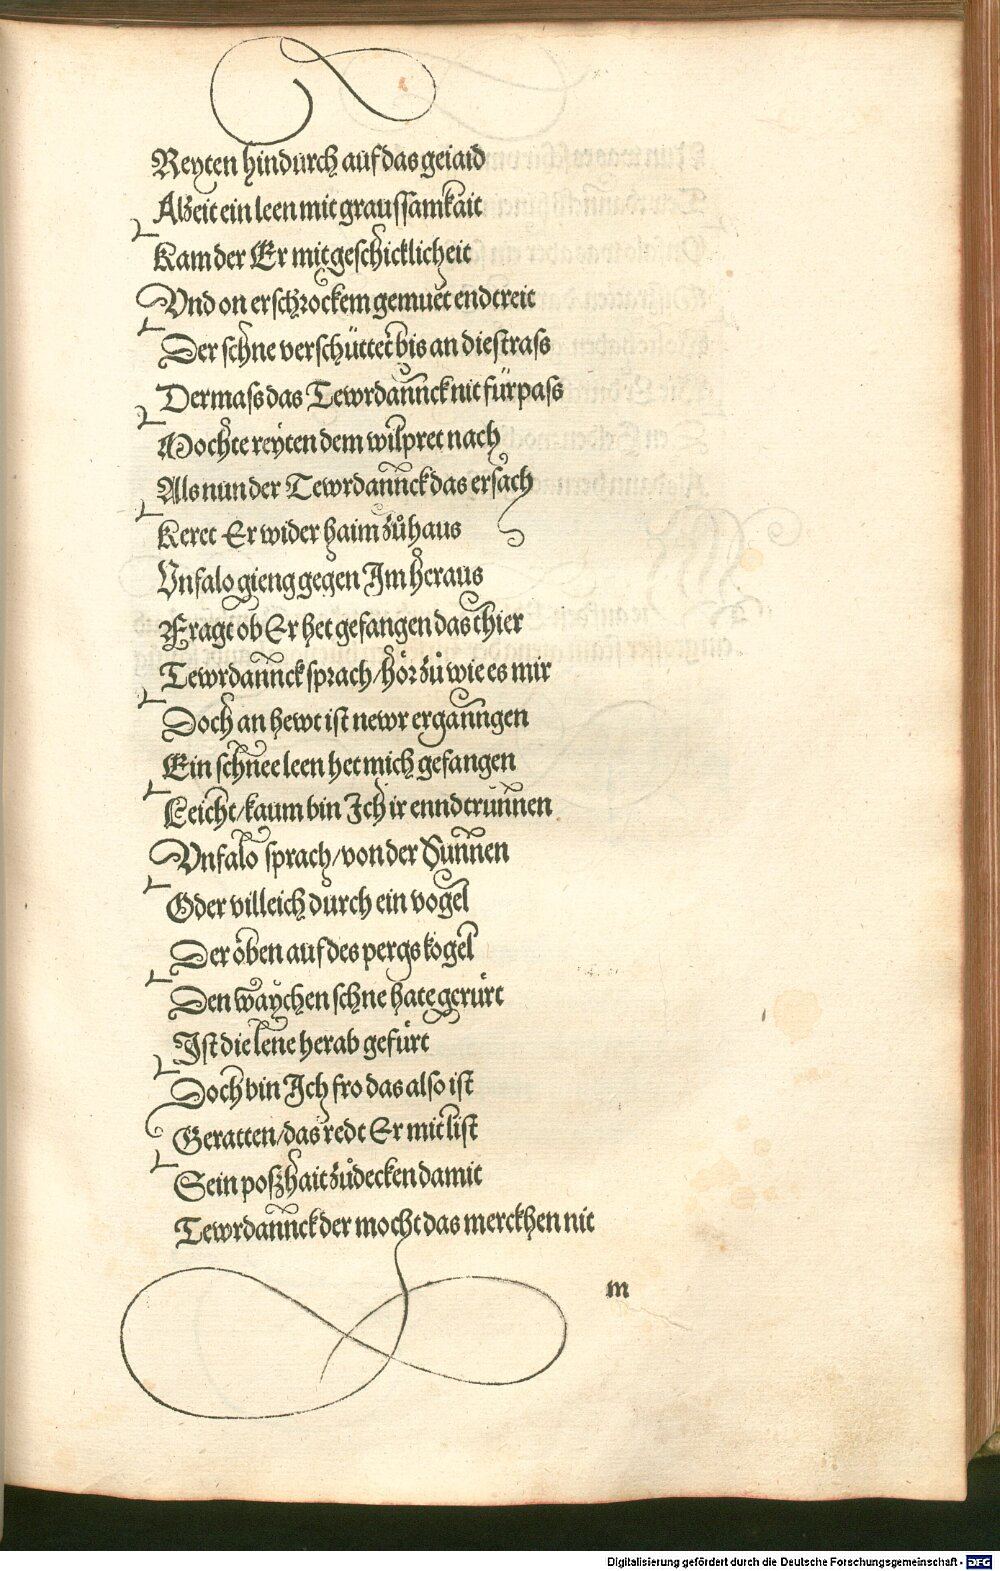 Reyten hindurch auf das geiaid
Alzeit ein leen mit graussamkait
Kam der Er mit geschicklicheit
Vnd on erschrockem gemuet endtreit
Der schne verschüttet bis an die strass
Dermass das Tewrdannck nit fürpass
Mochte reyten dem wilpret nach
Als nun der Tewrdannck das ersach
Keret Er wider haim zůhaus
Vnfalo gieng gegen Im heraus
Fragt ob Er het gefangen das thier
Tewrdannck sprach/hör zů wie es mir
Doch an hewt ist newr erganngen
Ein schnee leen het mich gefangen
Leicht/kaum bin Ich ir enndtrunnen
Vnfalo sprach/von der Sunnen
Oder villeich durch ein vogel
Der oben auf des pergs kogel
Den waychen schne hate gerürt
Ist die lene herab gefürt
Doch bin Ich fro das also ist
Geratten/das redt Er mit list
Sein poszhait zůdecken damit
Tewrdannck der mocht das merckhen nit
m
Digitalisierung gefördert durch die Deutsche Forschungsgemeinschaft - DFG